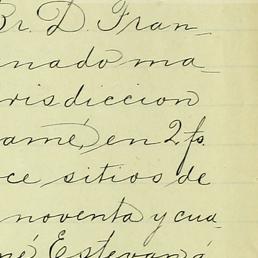 Br. D. Fran-
nado ma-
risdiccion
amé, en 2 fs.
ce sitios de
noventa y cua-
né Estevan á